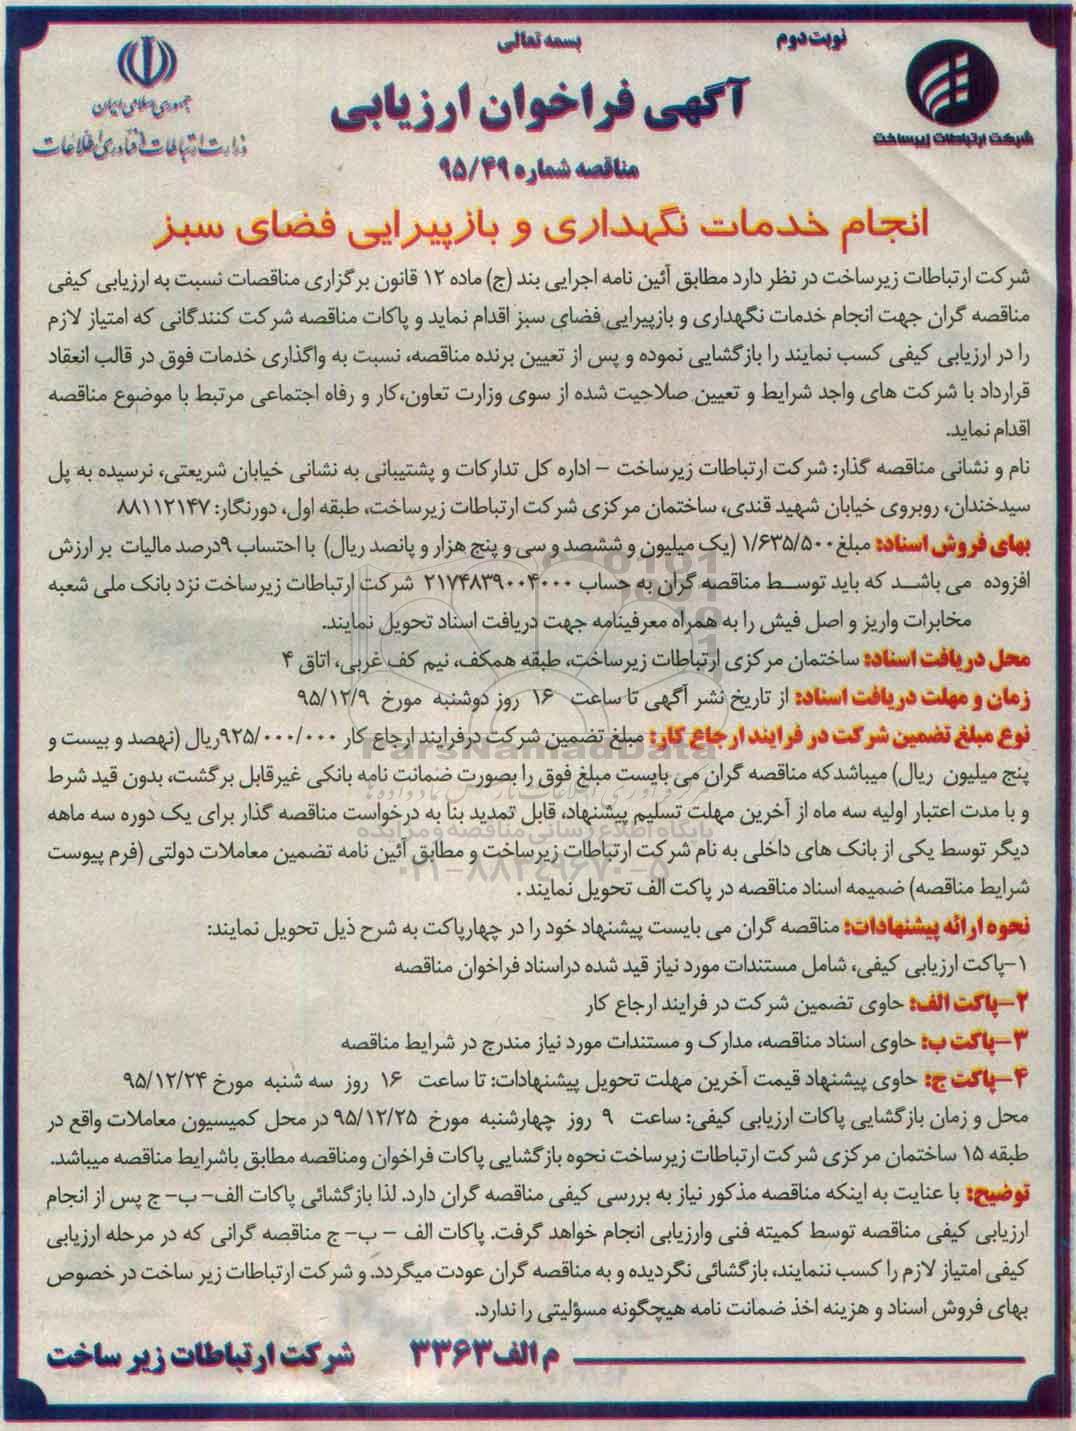 نوبت دوم
بسمه تعالی
جمهوری اسلامی ایران
وزارت ارتباطات و فناوری اطلاعات
شرکت ارتباطات زیرساخت
آگهی فراخوان ارزیابی
مناقصه شماره ۹۵/۴۹
انجام خدمات نگهداری و بازپیرایی فضای سبز
شرکت ارتباطات زیرساخت در نظر دارد مطابق آئین نامه اجرایی بند (ج) ماده ۱۲ قانون برگزاری مناقصات نسبت به ارزیابی کیفی
مناقصه گران جهت انجام خدمات نگهداری و بازپیرایی فضای سبز اقدام نماید و پاکات مناقصه شرکت کنندگانی که امتیاز لازم
را در ارزیابی کیفی کسب نمایند را بازگشایی نموده و پس از تعیین برنده مناقصه، نسبت به واگذاری خدمات فوق در قالب انعقاد
قرارداد با شرکت های واجد شرایط و تعیین صلاحیت شده از سوی وزارت تعاون،کار و رفاه اجتماعی مرتبط با موضوع مناقصه
اقدام نماید.
نام و نشانی مناقصه گذار: شرکت ارتباطات زیرساخت – اداره کل تدارکات و پشتیبانی به نشانی خیابان شریعتی، نرسیده به پل
سیدخندان، روبروی خیابان شهید قندی، ساختمان مرکزی شرکت ارتباطات زیرساخت، طبقه اول، دورنگار: ۸۸۱۱۲۱۴۷
بهای فروش اسناد: مبلغ ۱/۶۳۵/۵۰۰ (یک میلیون و ششصد و سی و پنج هزار و پانصد ریال) با احتساب ۹درصد مالیات بر ارزش
افزوده می باشد که باید توسط مناقصه گران به حساب ۲۱۷۴۸۳۹۰۰۴۰۰۰ شرکت ارتباطات زیرساخت نزد بانک ملی شعبه
مخابرات واریز و اصل فیش را به همراه معرفینامه جهت دریافت اسناد تحویل نمایند.
محل دریافت اسناد: ساختمان مرکزی ارتباطات زیرساخت، طبقه همکف، نیم کف غربی، اتاق ۴
زمان و مهلت دریافت اسناد: از تاریخ نشر آگهی تا ساعت ۱۶ روز دوشنبه مورخ ۹۵/۱۲/۹
نوع مبلغ تضمین شرکت در فرایند ارجاع کار: مبلغ تضمین شرکت درفرایند ارجاع کار ۹۲۵/۰۰۰/۰۰۰ریال (نهصد و بیست و
پنج میلیون ریال) میباشدکه مناقصه گران می بایست مبلغ فوق را بصورت ضمانت نامه بانکی غیرقابل برگشت، بدون قید شرط
و با مدت اعتبار اولیه سه ماه از آخرین مهلت تسلیم پیشنهاد، قابل تمدید بنا به درخواست مناقصه گذار برای یک دوره سه ماهه
دیگر توسط یکی از بانک های داخلی به نام شرکت ارتباطات زیرساخت و مطابق آئین نامه تضمین معاملات دولتی (فرم پیوست
شرایط مناقصه) ضمیمه اسناد مناقصه در پاکت الف تحویل نمایند .
نحوه ارائه پیشنهادات: مناقصه گران می بایست پیشنهاد خود را در چهارپاکت به شرح ذیل تحویل نمایند:
۱–پاکت ارزیابی کیفی، شامل مستندات مورد نیاز قید شده دراسناد فراخوان مناقصه
۲–پاکت الف: حاوی تضمین شرکت در فرایند ارجاع کار
۳–پاکت ب: حاوی اسناد مناقصه، مدارک و مستندات مورد نیاز مندرج در شرایط مناقصه
۴–پاکت ج: حاوی پیشنهاد قیمت آخرین مهلت تحویل پیشنهادات: تا ساعت ۱۶ روز سه شنبه مورخ ۹۵/۱۲/۲۴
محل و زمان بازگشایی پاکات ارزیابی کیفی: ساعت ۹ روز چهارشنبه مورخ ۹۵/۱۲/۲۵ در محل کمیسیون معاملات واقع در
طبقه ۱۵ ساختمان مرکزی شرکت ارتباطات زیرساخت نحوه بازگشایی پاکات فراخوان ومناقصه مطابق باشرایط مناقصه میباشد.
توضیح: با عنایت به اینکه مناقصه مذکور نیاز به بررسی کیفی مناقصه گران دارد. لذا بازگشائی پاکات الف– ب– ج پس از انجام
ارزیابی کیفی مناقصه توسط کمیته فنی وارزیابی انجام خواهد گرفت. پاکات الف – ب– ج مناقصه گرانی که در مرحله ارزیابی
کیفی امتیاز لازم را کسب ننمایند، بازگشائی نگردیده و به مناقصه گران عودت میگردد. و شرکت ارتباطات زیر ساخت در خصوص
بهای فروش اسناد و هزینه اخذ ضمانت نامه هیچگونه مسؤلیتی را ندارد.
م الف ۳۳۶۳
شرکت ارتباطات زیر ساخت
ParsNamadData
پایگاه اطلاع رسانی مناقصه و مزایده
۰۲۱-۸۸۳۴۹۶۷۰-۵